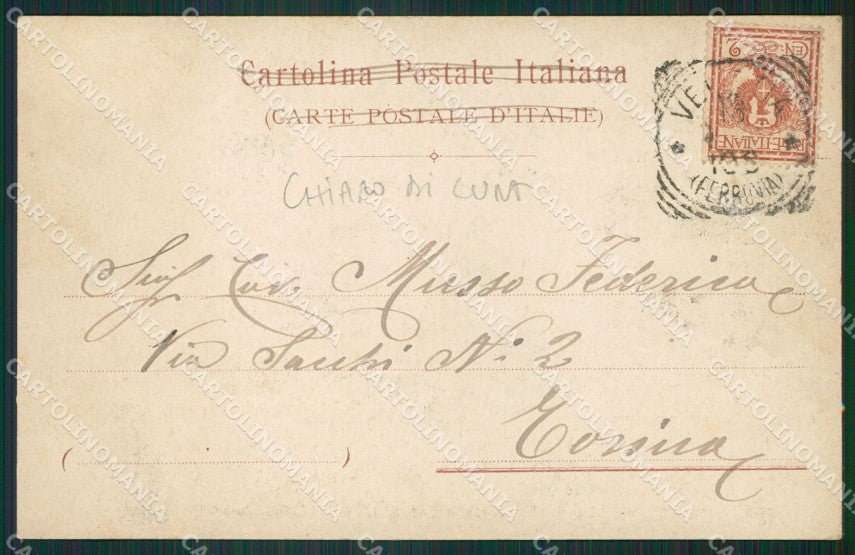 Cartolina Postale Italiana
(CARTE POSTALE D'ITALIE)
CHIARO DI LUNA
Sig. Cav. Musso Federico
Via Sacchi N.º 2
Torino
(FERROVIA)
CARTOLINOMANIA